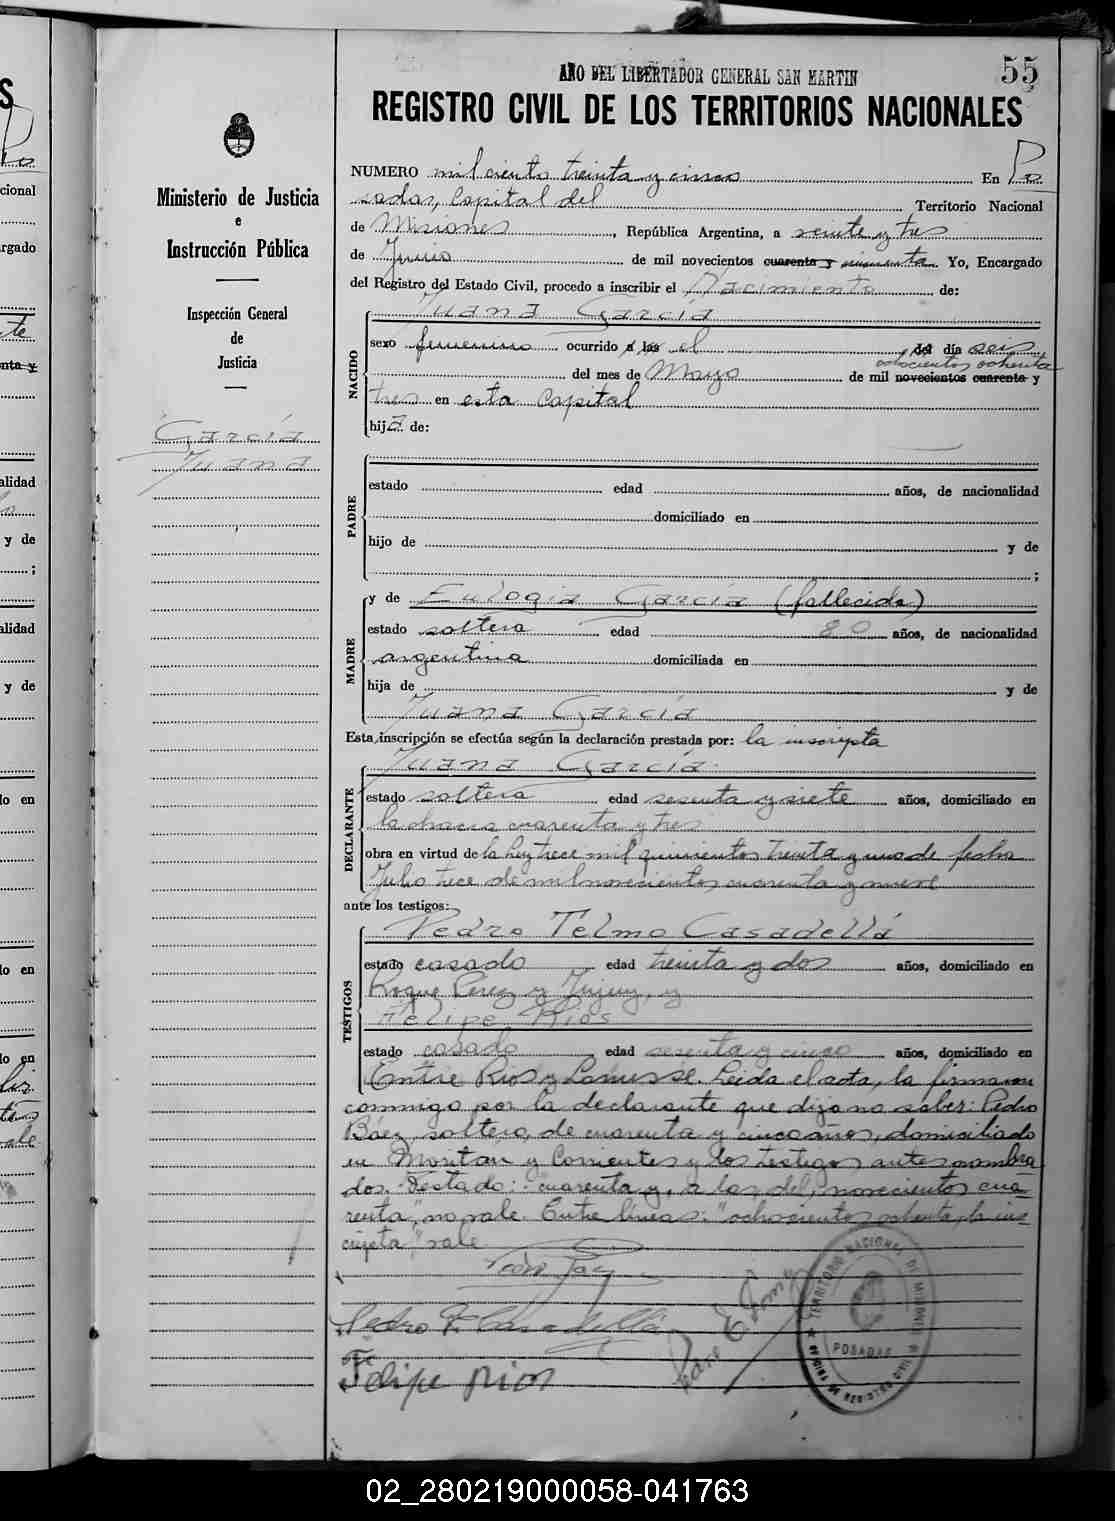 55
AÑO DEL LIBERTADOR GENERAL SAN MARTIN
REGISTRO CIVIL DE LOS TERRITORIOS NACIONALES
Ministerio de Justicia
e
Instrucción Pública
Inspección General
de
Justicia
García
Juana
NUMERO mil ciento treinta y cinco En Po
sadas, Capital del Territorio Nacional
de Misiones, República Argentina, a veinte y tres
de Junio de mil novecientos cuarenta y cincuenta Yo, Encargado
del Registro del Estado Civil, procedo a inscribir el Nacimiento de:
NACIDO
Juana García
sexo femenino ocurrido a las el del día seis
ochocientos ochenta
del mes de Mayo de mil novecientos cuarenta y
tres en esta Capital
hija de:
PADRE
estado edad años, de nacionalidad
domiciliado en
hijo de y de
;
MADRE
y de Eulogia García (fallecida)
estado soltera edad 80 años, de nacionalidad
argentina domiciliada en
hija de y de
Juana García
Esta inscripción se efectúa según la declaración prestada por: la inscripta
DECLARANTE
Juana García
estado soltera edad sesenta y siete años, domiciliado en
la chacra cuarenta y tres
obra en virtud de la Ley trece mil quinientos treinta y uno de fecha
Julio trece de mil novecientos cuarenta y nueve
ante los testigos:
TESTIGOS
Pedro Telmo Casadellá
estado casado edad treinta y dos años, domiciliado en
Roque Perez y Jujuy, y
Felipe Rios
estado casado edad sesenta y cinco años, domiciliado en
Entre Rios y Lanusse. Leida el acta, la firmaron
conmigo por la declarante que dijo no saber: Pedro
Báez, soltero, de cuarenta y cinco años, domiciliado
en Moritán y Corrientes y los testigos antes nombra
dos. Testado: "cuarenta y, a las, del, novecientos cua
renta", no vale. Entre líneas: "ochocientos ochenta, la ins
cripta", vale
Pedro T. Casadellá
Felipe Rios
TERRITORIO NACIONAL DE MISIONES
POSADAS
OFICINA DE REGISTRO CIVIL
02_280219000058-041763